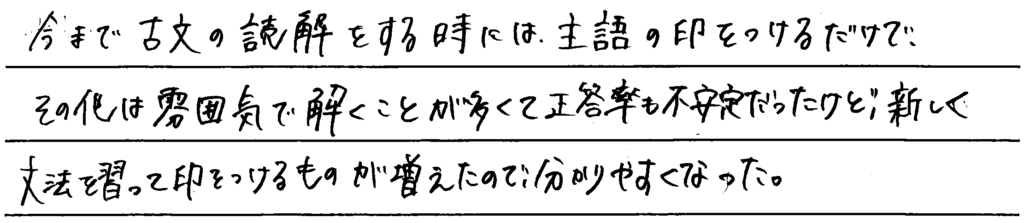 今まで古文の読解をする時には、主語の印をつけるだけで、
その他は雰囲気で解くことが多くて正答率も不安定だったけど、新しく
文法を習って印をつけるものが増えたので、分かりやすくなった。